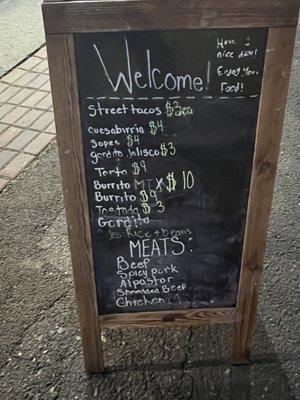 Welcome!
Have
nice day!
Enjoy your
Food!
Street tacos $3ea
cuesabirria $4
Sopes $4
gordita Jalisco $3
Torta $9
Burrito MTX $10
Burrito $9
Tostada $3
Gordita
Rice + beans
MEATS:
Beef
Spicy pork
Alpastor
Shredded Beef
Chicken